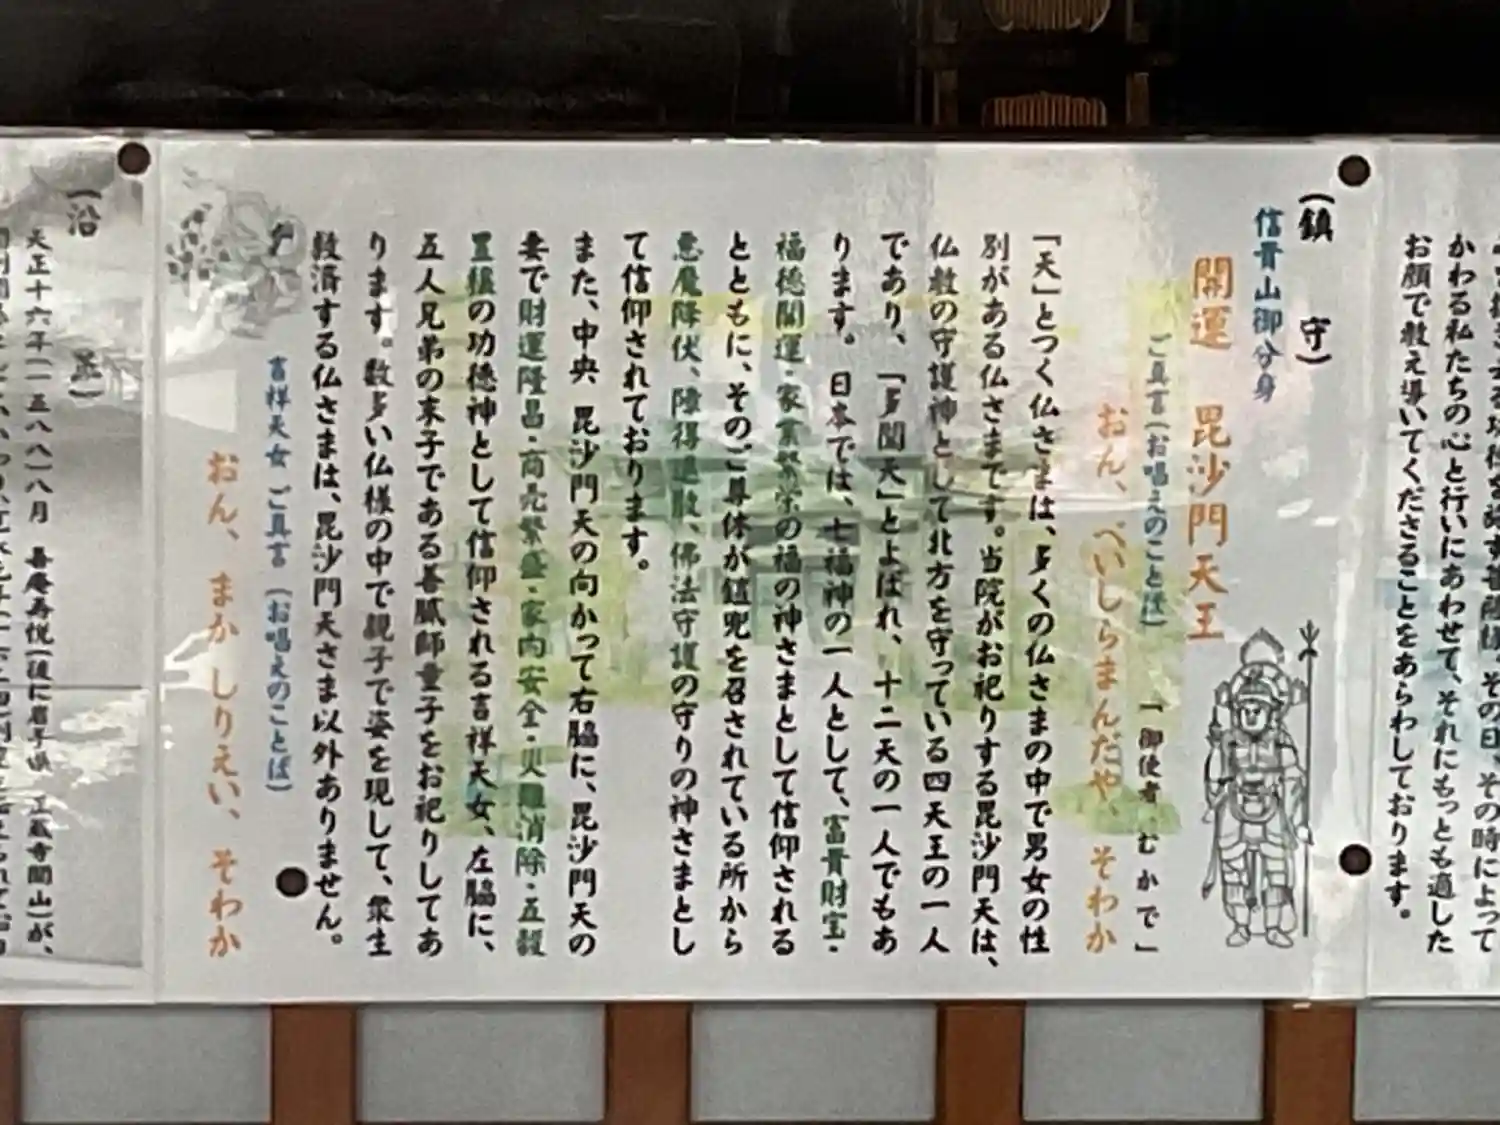 かわる私たちの心と行いにあわせて、それにもっとも適した
お顔で教え導いてくださることをあらわしております。
(鎮守)
信貴山御分身
開運 毘沙門天王
「御使者 むかで」
ご真言(お唱えのことば)
おん、べいしらまんだや、そわか
「天」とつく仏さまは、多くの仏さまの中で男女の性
別がある仏さまです。当院がお祀りする毘沙門天は、
仏教の守護神として北方を守っている四天王の一人
であり、「多聞天」とよばれ、十二天の一人でもあ
ります。日本では、七福神の一人として、富貴財宝・
福徳開運・家業繁栄の福の神さまとして信仰される
とともに、そのご尊体が鎧兜を召されている所から
悪魔降伏、障得退散、佛法守護の守りの神さまとし
て信仰されております。
また、中央、毘沙門天の向かって右脇に、毘沙門天の
妻で財運隆昌・商売繁盛・家内安全・火難消除・五穀
豊穣の功徳神として信仰される吉祥天女、左脇に、
五人兄弟の末子である善膩師童子をお祀りしてあ
ります。数多い仏様の中で親子で姿を現して、衆生
救済する仏さまは、毘沙門天さま以外ありません。
吉祥天女 ご真言 (お唱えのことば)
おん、まか しりえい、そわか
(沿
天正十六年(一五八八)八月